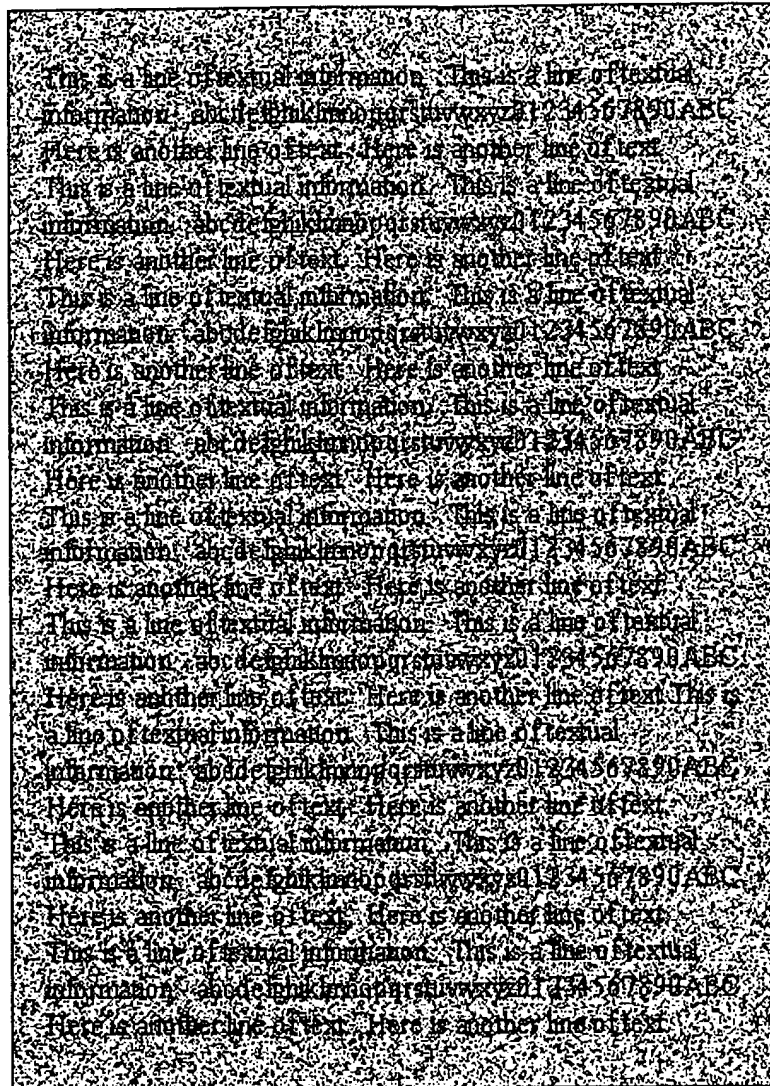 This is a line of textual information. This is a line of textual
information. abcdefghiklmnopqrstuvwxyz01234567890ABC
Here is another line of text. Here is another line of text.
This is a line of textual information. This is a line of textual
information. abcdefghiklmnopqrstuvwxyz01234567890ABC
Here is another line of text. Here is another line of text.
This is a line of textual information. This is a line of textual
information. abcdefghiklmnopqrstuvwxyz01234567890ABC
Here is another line of text. Here is another line of text.
This is a line of textual information. This is a line of textual
information. abcdefghiklmnopqrstuvwxyz01234567890ABC
Here is another line of text. Here is another line of text.
This is a line of textual information. This is a line of textual
information. abcdefghiklmnopqrstuvwxyz01234567890ABC
Here is another line of text. Here is another line of text.
This is a line of textual information. This is a line of textual
information. abcdefghiklmnopqrstuvwxyz01234567890ABC
Here is another line of text. Here is another line of text.This is
a line of textual information. This is a line of textual
information. abcdefghiklmnopqrstuvwxyz01234567890ABC
Here is another line of text. Here is another line of text.
This is a line of textual information. This is a line of textual
information. abcdefghiklmnopqrstuvwxyz01234567890ABC
Here is another line of text. Here is another line of text.
This is a line of textual information. This is a line of textual
information. abcdefghiklmnopqrstuvwxyz01234567890ABC
Here is another line of text. Here is another line of text.